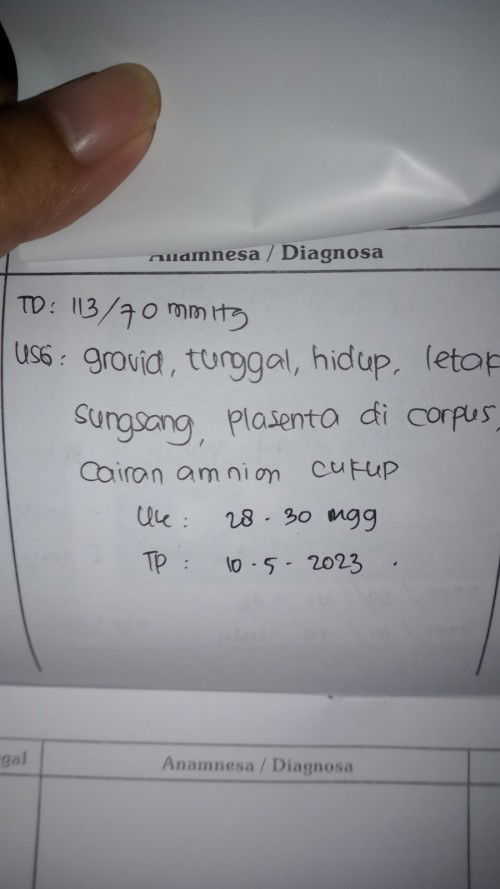 Anamnesa / Diagnosa
TD: 113/70 mmHg
USG: gravid, tunggal, hidup, letak
sungsang, plasenta di corpus,
cairan amnion cukup
UK: 28-30 mgg
TP: 10-5-2023.
gal
Anamnesa / Diagnosa